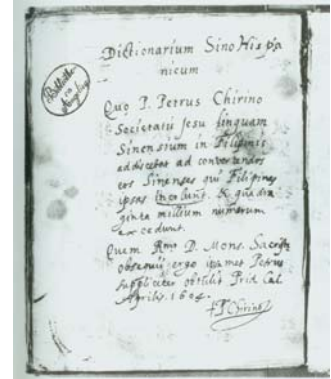 Dictionarium Sino Hispa
nicum
Quo P. Petrus Chirino
Societatis Jesu linguam
Sinensium in Filipinis
addiscebat ad convertendos
eos Sinenses qui Filipinas
ipsas incolunt. & quadra
ginta millium numerum
excedunt.
Quem Rmo D. Mons. Sacristæ
obsequii ergo ipsamet Petrus
suppliciter obtulit Prid Cal
Aprilis. 1604.
P Chirino